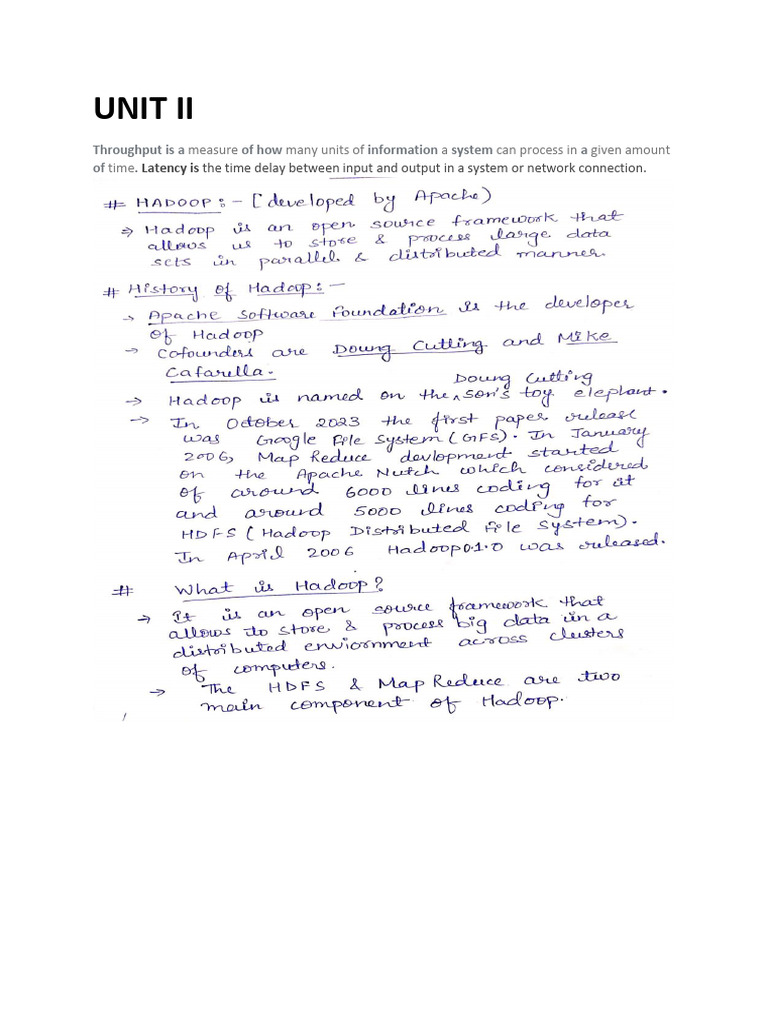 UNIT II
Throughput is a measure of how many units of information a system can process in a given amount
of time. Latency is the time delay between input and output in a system or network connection.
# HADOOP:- [developed by Apache)
→ Hadoop is an open source framework that
allows us to store & process large data
sets in parallel & distributed manner.
# History of Hadoop:-
→ Apache Software Foundation is the developer
of Hadoop
→ Cofounders are Doung Cutting and Mike
Cafarella.
Doung Cutting
→ Hadoop is named on the ^ son's toy elephant.
→ In October 2023 the first paper release
was Google File System (GFS). In January
2006, Map Reduce devlopment started
on the Apache Nutch which considered
of around 6000 lines coding for it
and around 5000 lines coding for
HDFS (Hadoop Distributed File System).
In April 2006 Hadoop 0.1.0 was released.
# What is Hadoop?
→ It is an open source framework that
allows to store & process big data in a
distributed enviornment across clusters
of computers.
→ The HDFS & Map Reduce are two
main component of Hadoop.